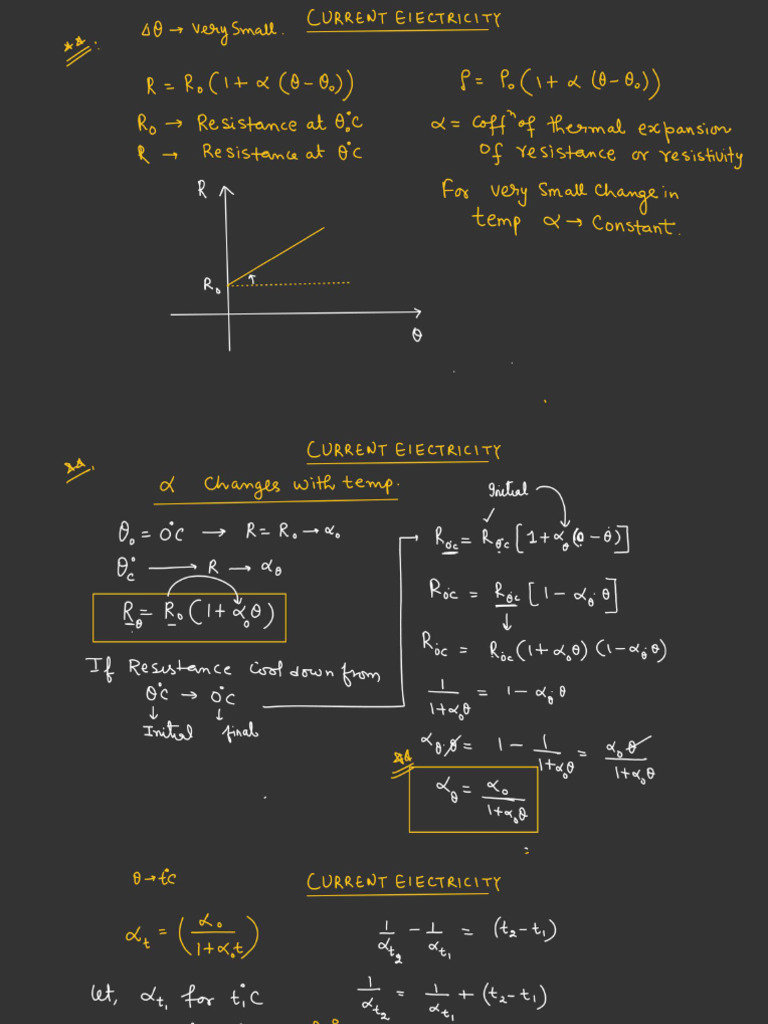 CURRENT ELECTRICITY
Δθ → very small.
R = R₀(1 + α(θ - θ₀))
R₀ → Resistance at θ₀°C
R → Resistance at θ°C
ρ = ρ₀(1 + α(θ - θ₀))
α = Coffⁿ of thermal expansion
of resistance or resistivity
For very small change in
temp α → Constant.
R
R₀
θ
CURRENT ELECTRICITY
α Changes with temp.
θ₀ = 0°C → R = R₀ → α₀
θ°C → R → α_θ
R_θ = R₀(1 + α₀θ)
If Resistance cool down from
θ°C → 0°C
↓ ↓
Initial final
Initial
R_0°C = R_θ°C [1 + α_θ(0 - θ)]
R_0°C = R_θ°C [1 - α_θ·θ]
↓
R_0°C = R_0°C(1 + α₀θ)(1 - α_θ·θ)
1/(1 + α₀θ) = 1 - α_θ·θ
α_θ·θ = 1 - 1/(1 + α₀θ) = α₀θ/(1 + α₀θ)
α_θ = α₀/(1 + α₀θ)
CURRENT ELECTRICITY
θ → t°C
α_t = (α₀/(1 + α₀t))
let, α_t₁ for t₁°C
1/α_t₂ - 1/α_t₁ = (t₂ - t₁)
1/α_t₂ = 1/α_t₁ + (t₂ - t₁)